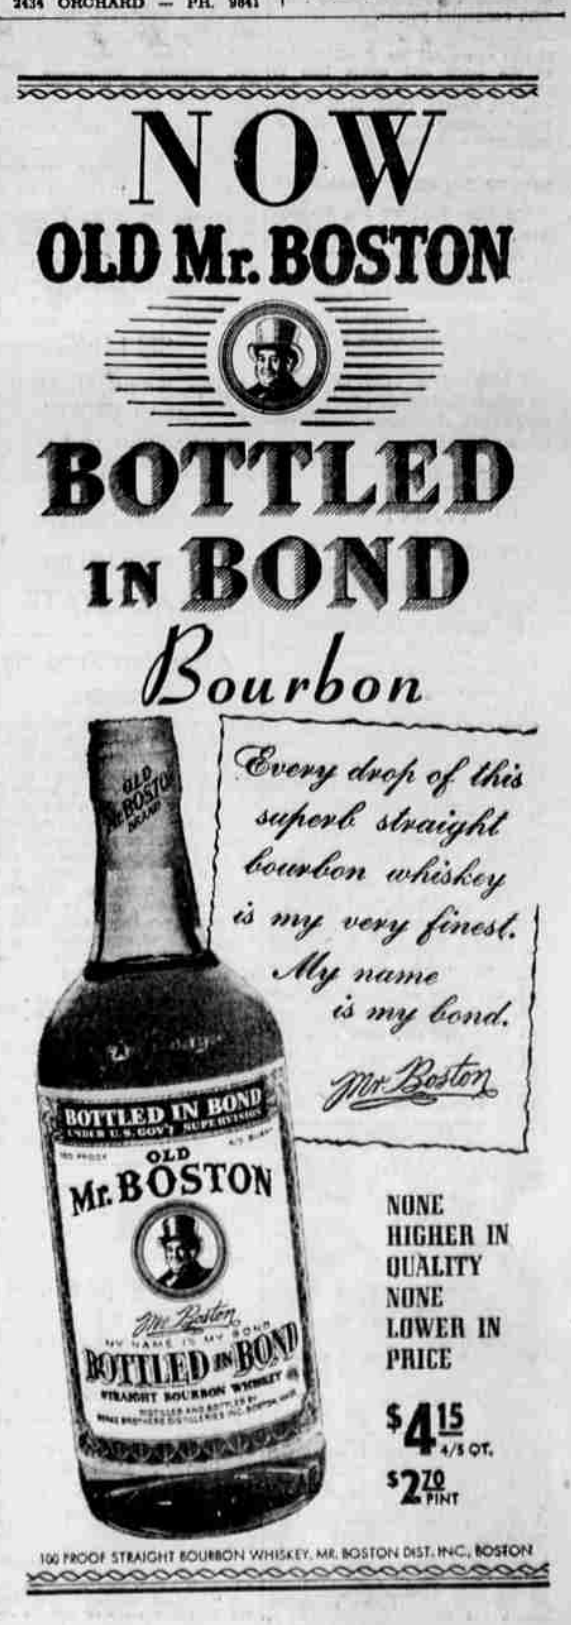 2434 ORCHARD — PH. 9841
NOW
OLD Mr. BOSTON
BOTTLED
IN BOND
Bourbon
OLD
Mr. BOSTON
BRAND
Every drop of this
superb straight
bourbon whiskey
is my very finest.
My name
is my bond.
Mr. Boston
BOTTLED IN BOND
UNDER U.S. GOV'T SUPERVISION
100 PROOF
OLD
Mr. BOSTON
Mr. Boston
MY NAME IS MY BOND
BOTTLED IN BOND
STRAIGHT BOURBON WHISKEY
DISTILLED AND BOTTLED BY
NONE
HIGHER IN
QUALITY
NONE
LOWER IN
PRICE
$4.15
4/5 QT.
$2.70
PINT
100 PROOF STRAIGHT BOURBON WHISKEY, MR. BOSTON DIST. INC., BOSTON